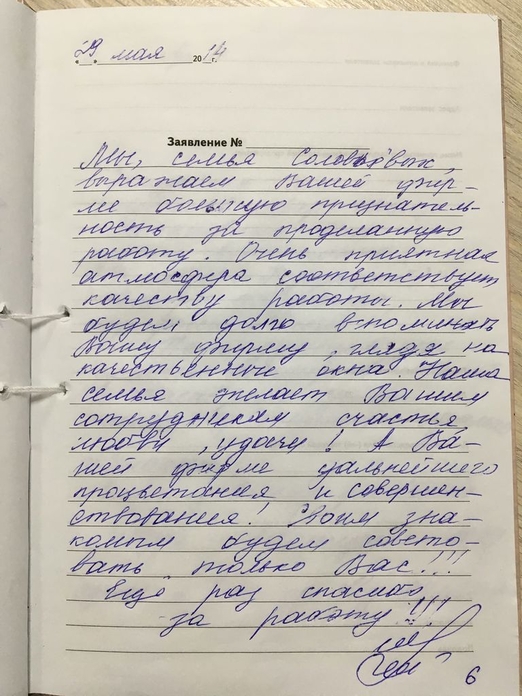 "29" мая 2014г.
Заявление №
Мы, семья Соловьёвых,
выражаем Вашей фир-
ме большую признатель-
ность за проделанную
работу. Очень приятная
атмосфера соответствует
качеству работы. Мы
будем долго вспоминать
Вашу фирму, глядя на
качественные окна. Наша
семья желает Вашим
сотрудникам счастья,
любви, удачи! А Ва-
шей фирме дальнейшего
процветания и совершен-
ствования! Своим зна-
комым будем совето-
вать только Вас!!!
Ещё раз спасибо
за работу!!!
6